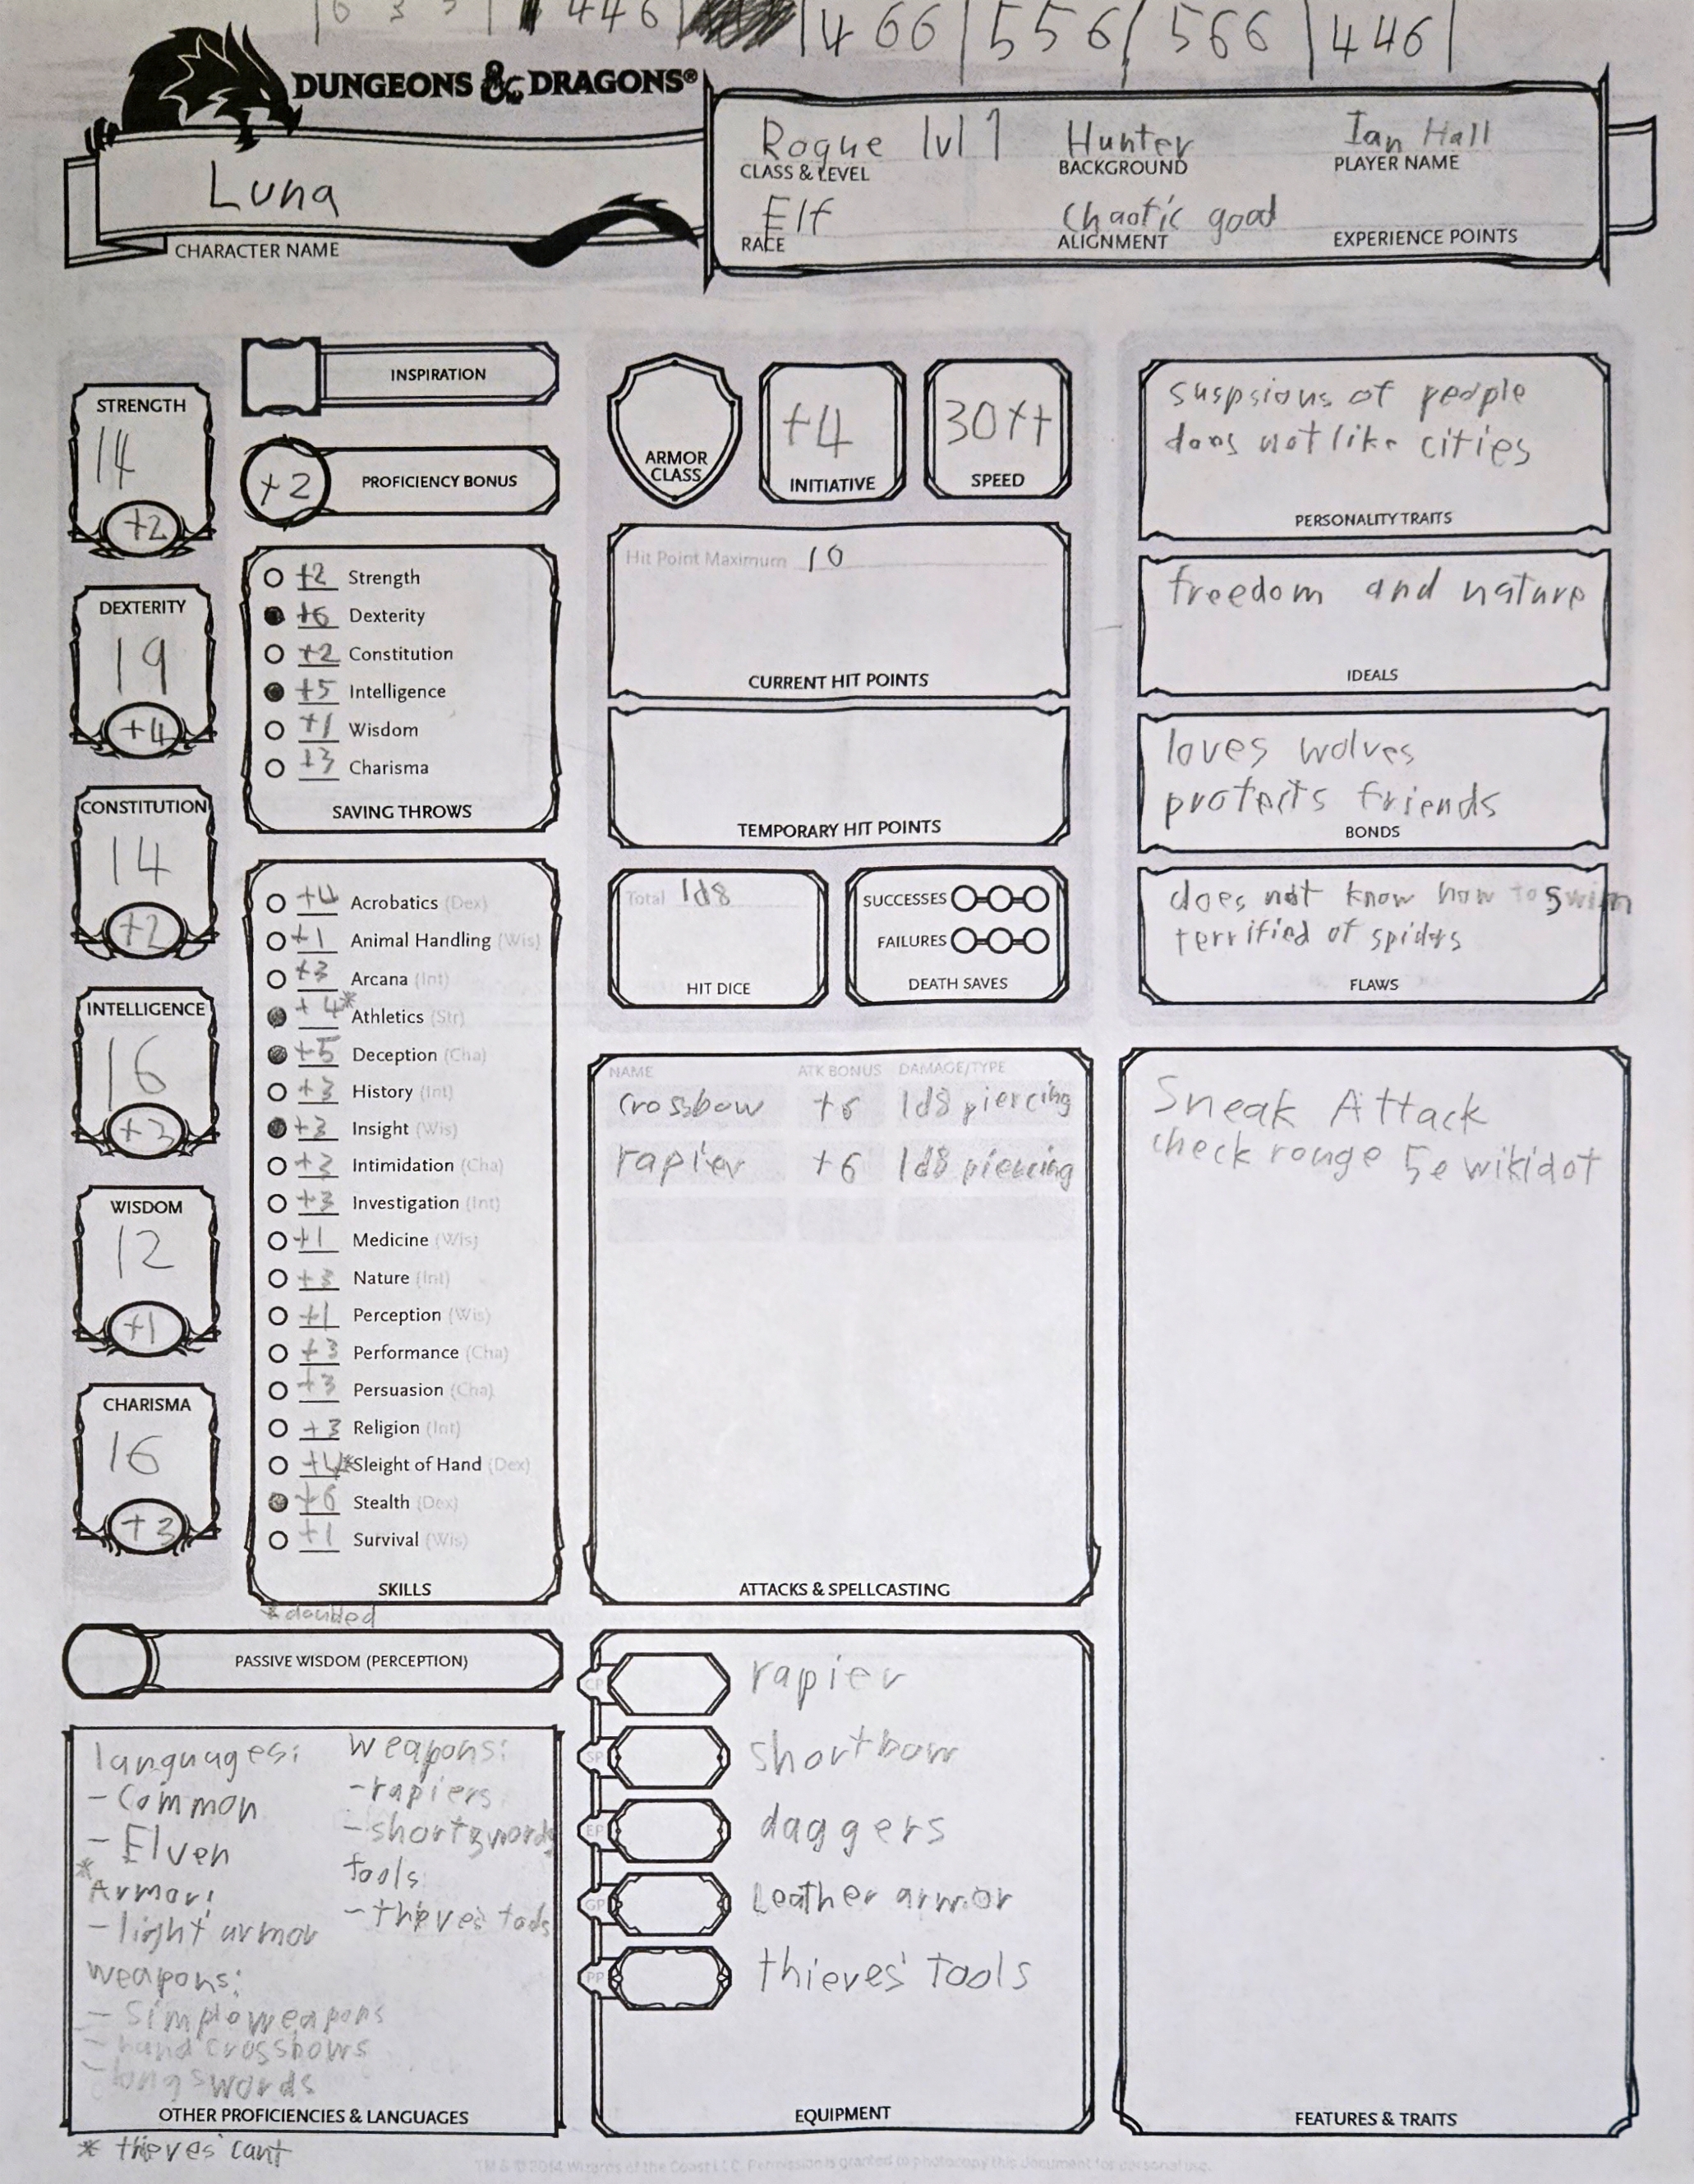 446 | 466 | 556 | 566 | 446 |
DUNGEONS & DRAGONS®
Luna
CHARACTER NAME
Rogue lvl 1
CLASS & LEVEL
Hunter
BACKGROUND
Ian Hall
PLAYER NAME
Elf
RACE
Chaotic good
ALIGNMENT
EXPERIENCE POINTS
STRENGTH
14
+2
DEXTERITY
19
+4
CONSTITUTION
14
+2
INTELLIGENCE
16
+3
WISDOM
12
+1
CHARISMA
16
+3
INSPIRATION
+2 PROFICIENCY BONUS
+2 Strength
+6 Dexterity
+2 Constitution
+5 Intelligence
+1 Wisdom
+3 Charisma
SAVING THROWS
+4 Acrobatics (Dex)
+1 Animal Handling (Wis)
+3 Arcana (Int)
+4* Athletics (Str)
+5 Deception (Cha)
+3 History (Int)
+3 Insight (Wis)
+3 Intimidation (Cha)
+3 Investigation (Int)
+1 Medicine (Wis)
+3 Nature (Int)
+1 Perception (Wis)
+3 Performance (Cha)
+3 Persuasion (Cha)
+3 Religion (Int)
+4* Sleight of Hand (Dex)
+6 Stealth (Dex)
+1 Survival (Wis)
SKILLS
* doubled
PASSIVE WISDOM (PERCEPTION)
languages:
- Common
- Elven
*
Armor:
- light armor
weapons:
- Simple weapons
- hand crossbows
- longswords
weapons:
- rapiers
- shortswords
tools
- thieves' tools
OTHER PROFICIENCIES & LANGUAGES
* thieves' cant
ARMOR CLASS
+4
INITIATIVE
30ft
SPEED
Hit Point Maximum 10
CURRENT HIT POINTS
TEMPORARY HIT POINTS
Total 1d8
HIT DICE
SUCCESSES
FAILURES
DEATH SAVES
NAME ATK BONUS DAMAGE/TYPE
crossbow +6 1d8 piercing
rapier +6 1d8 piercing
ATTACKS & SPELLCASTING
CP rapier
SP shortbow
EP daggers
GP Leather armor
PP thieves' Tools
EQUIPMENT
suspsious of people
does not like cities
PERSONALITY TRAITS
freedom and nature
IDEALS
loves wolves
protects friends
BONDS
does not know how to swim
terrified of spiders
FLAWS
Sneak Attack
check rouge 5e wikidot
FEATURES & TRAITS
TM & © 2014 Wizards of the Coast LLC. Permission is granted to photocopy this document for personal use.